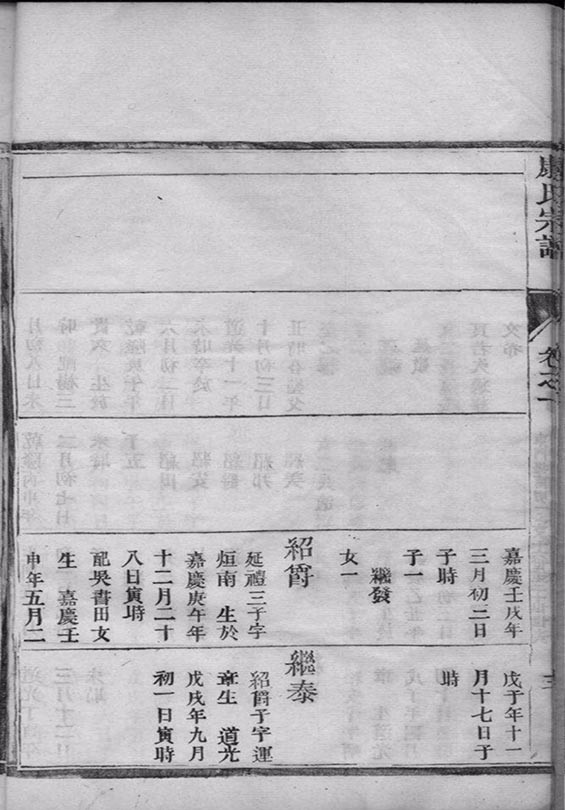 康氏宗譜
卷之
嘉慶壬戌年
三月初三日
子時
子一
繼發
女一
紹爵
延禮三子字
烜南 生於
嘉慶庚午年
十二月二十
八日寅時
配吳書田女
生 嘉慶壬
申年五月二
戊子年十一
月十七日子
時
繼泰
紹爵子字運
章生 道光
戊戌年九月
初一日寅時